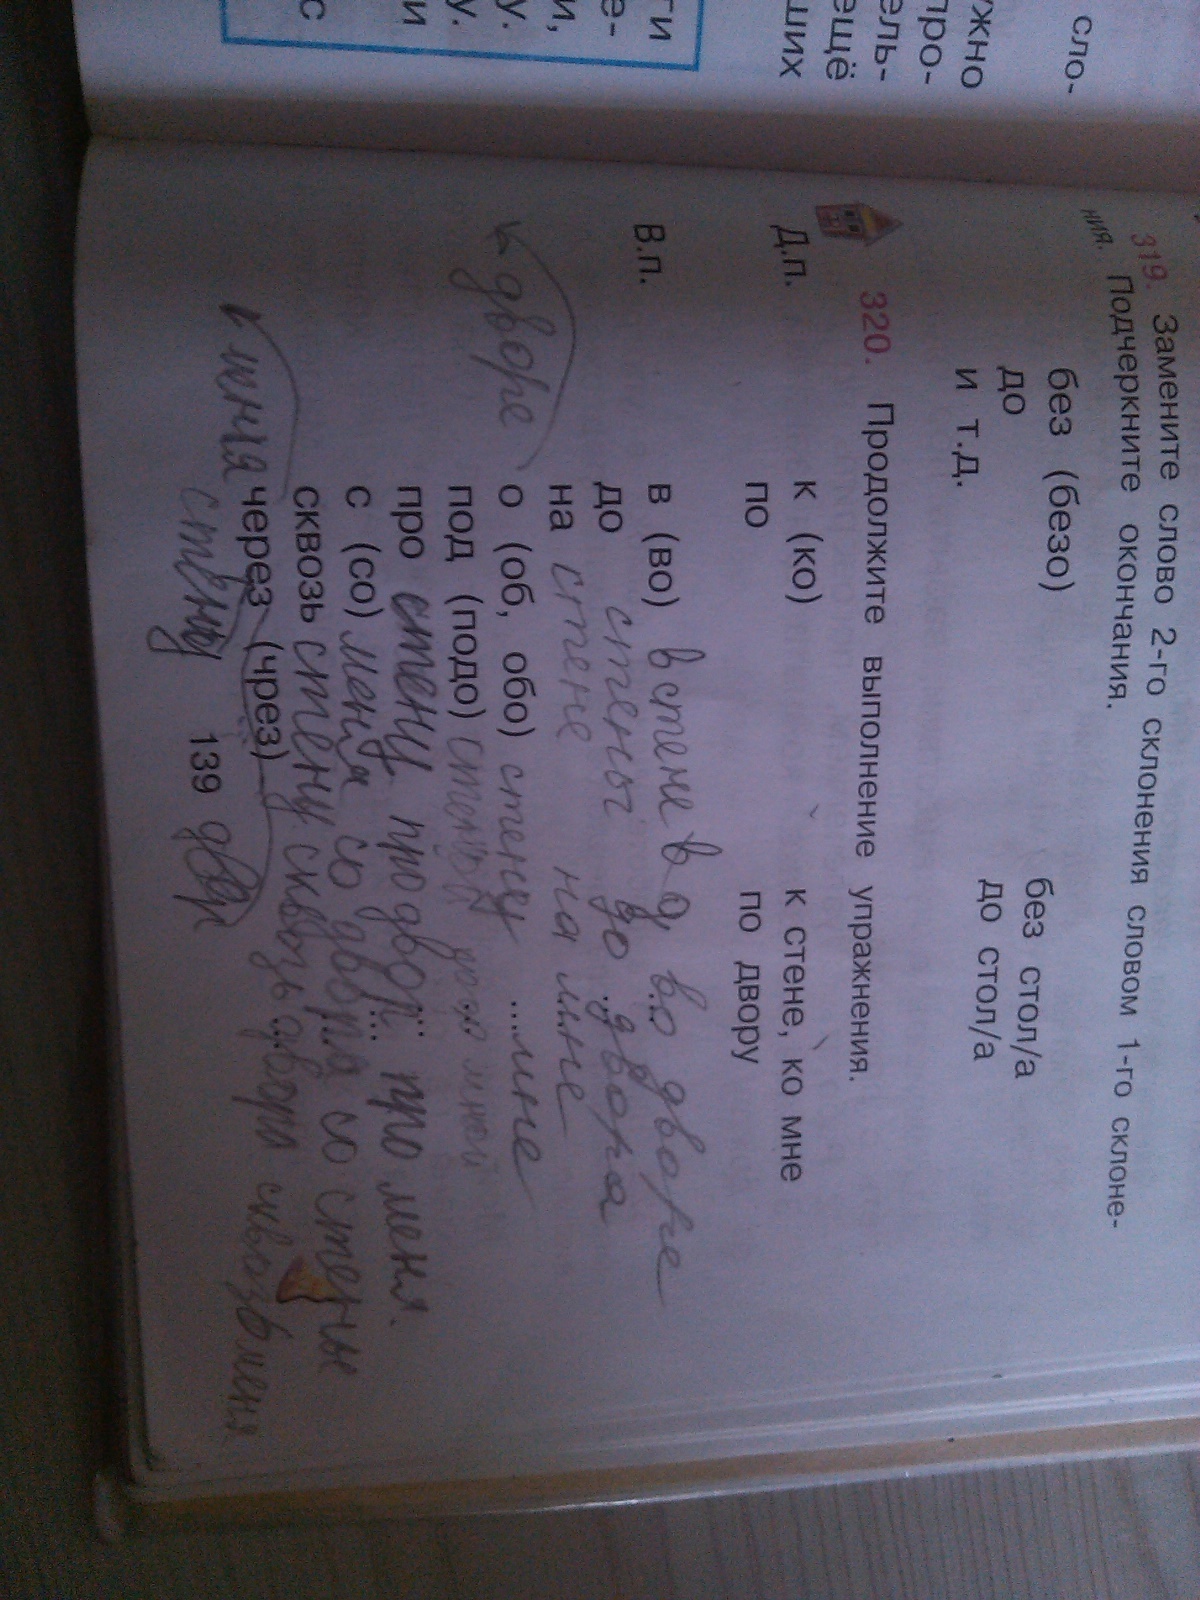 сло-
ужно
про-
ель-
ещё
ших
ги
е-
и,
у.
у.
и
с
319. Замените слово 2-го склонения словом 1-го склоне-
ния. Подчеркните окончания.
без (безо) без стол/а
до до стол/а
и т.д.
320. Продолжите выполнение упражнения.
Д.п. к (ко) к стене, ко мне
по по двору
В.п. в (во) в стене в д, во дворе
до стены до двора
на стене на мне
дворе о (об, обо) стену ...мне
под (подо) подо мной
про стену про двор... про меня.
с (со) меня со двора со стены
сквозь стену сквозь двора сквозь меня
меня через (чрез)
стену 139 двор